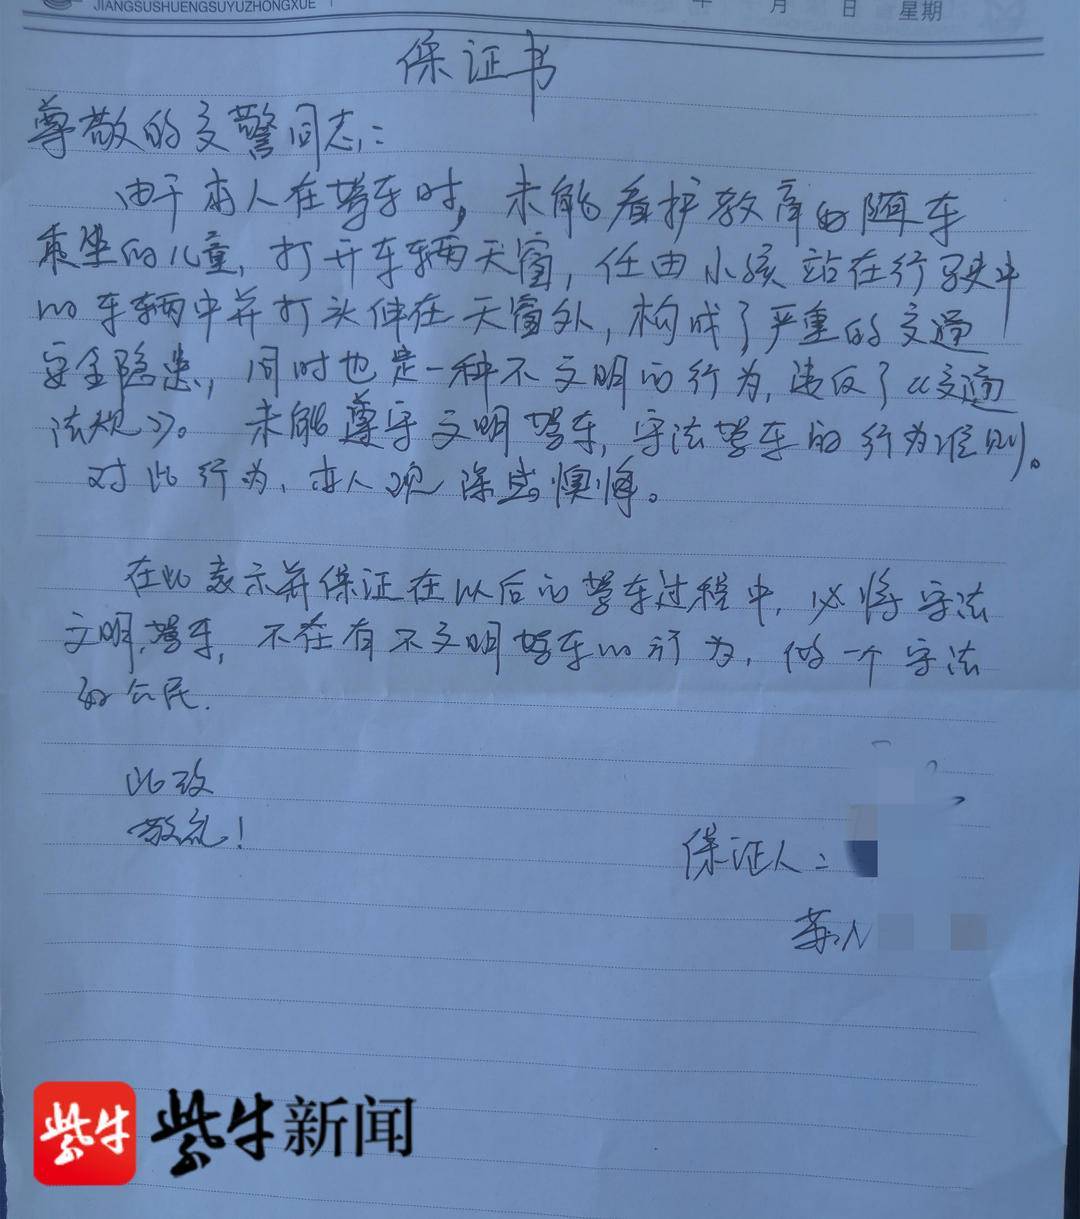 JIANGSUSHUENGSUYUZHONGXUE
年 月 日 星期
保证书
尊敬的交警同志：
由于本人在驾车时，未能看护教育的随车
乘坐的儿童，打开车辆天窗，任由小孩站在行驶中
的车辆中并打头伸在天窗外，构成了严重的交通
安全隐患，同时也是一种不文明的行为，违反了《交通
法规》。未能遵守文明驾车，守法驾车的行为准则。
对此行为，本人现深感懊悔。
在此表示并保证在以后的驾车过程中，必将守法
文明，驾车，不在有不文明驾车的行为，做一个守法
的公民.
此致
敬礼！
保证人：
苏N
紫牛
紫牛新闻